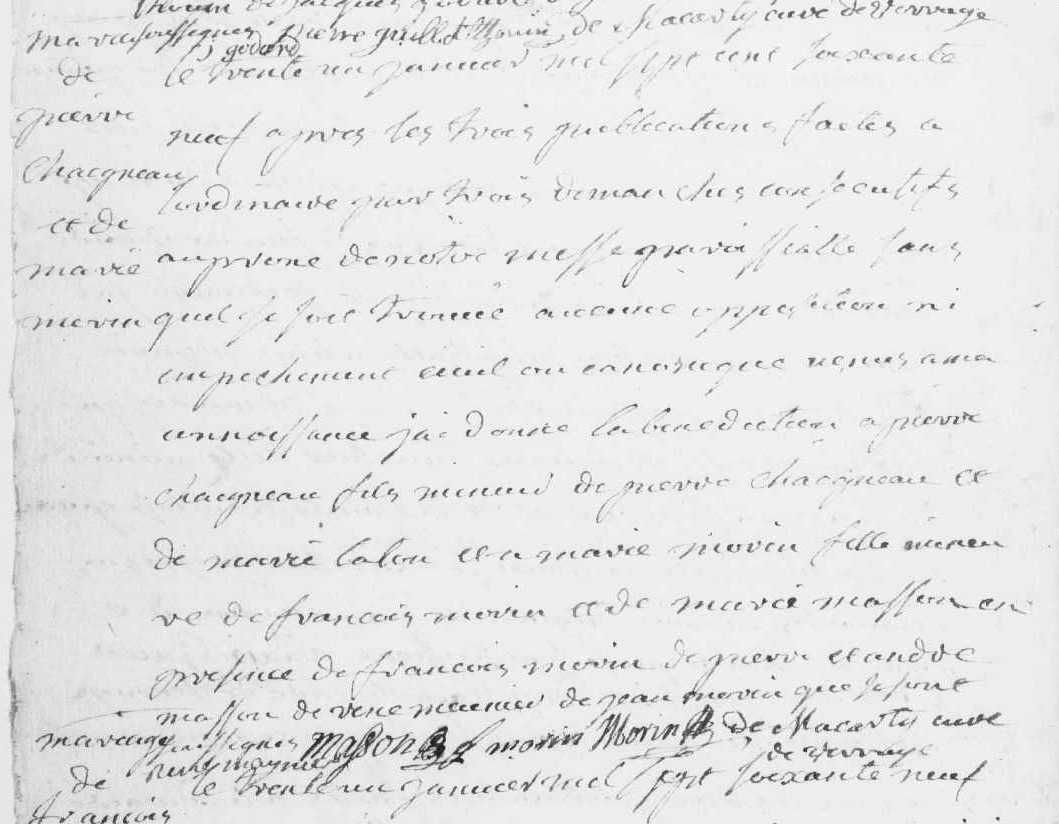 de jacques
soussignes pierre guillot Morin de Macarty curé de Verruye
godard
mariage
de
pierre
Chacgneau
et de
marie
morin
le trente un janvier mil sept cent soixante
neuf apres les trois publications faites a
lordinaire par trois dimanches consecutifs
au prone de notre messe paroissialle sans
quil se soit trouvé aucune opposition ni
empechement civil ou canonique venus a ma
connoissance jai donné la benediction a pierre
chacgneau fils mineur de pierre chacgneau et
de marie lalon et a marie morin fille mineu
re de francois morin et de marie masson en
presence de francois morin de pierre et andre
masson de rene meunier de jean morin qui se sont
soussignes masson f morin Morin de Macarty curé
de Verruye
mariage
de
francois
le trente un janvier mil sept soixante neuf